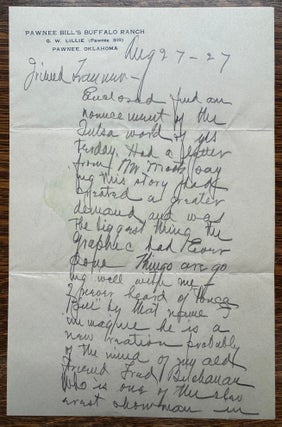 PAWNEE BILL'S BUFFALO RANCH
G. W. LILLIE (Pawnee Bill)
PAWNEE, OKLAHOMA
Aug 27-27
Friend
Enclosed find an
nouncement of the
Tulsa World of yes
terday. Had a letter
from Mr. say
ing this story had
created a greater
demand and was
the biggest thing the
Graphic had ever
done Things are go
ing well with me -
I never heard of
Bill by that name I
immagine he is a
new creation probably
of the mind of my old
friend Fred Buchanan
who is one of the
showman in